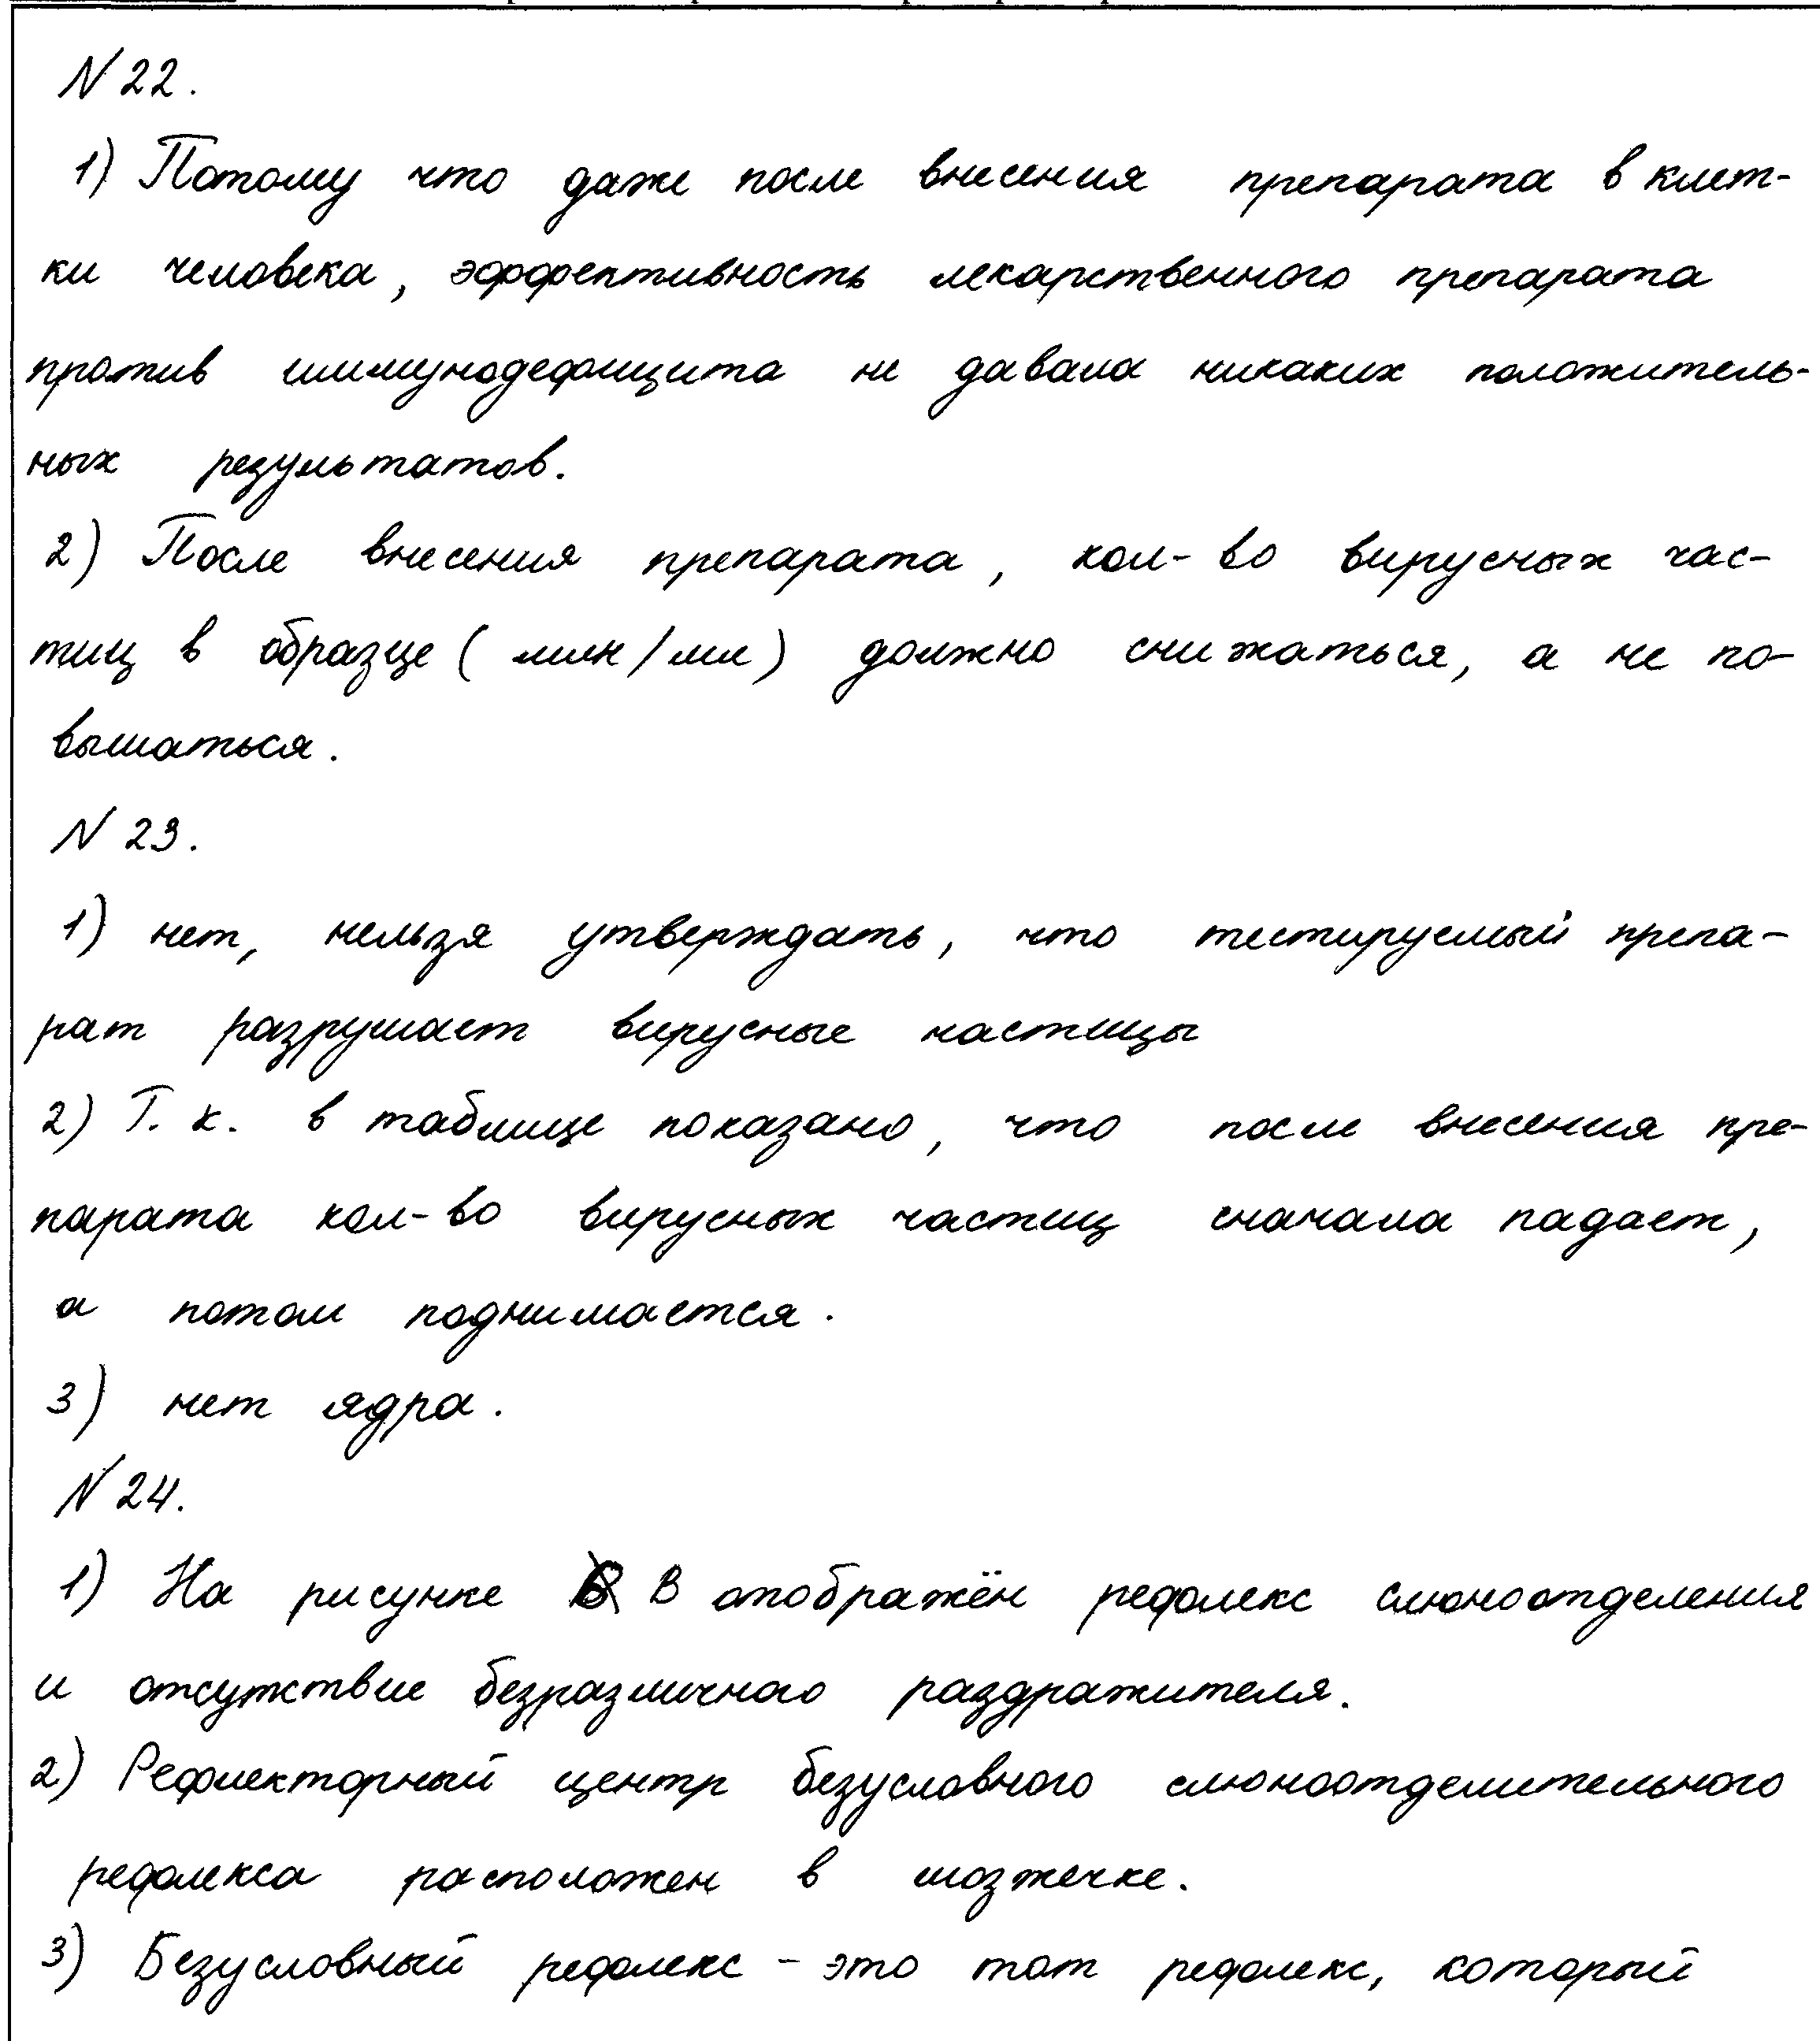 N 22.
1) Потому что даже после внесения препарата в клет-
ки человека, эффективность лекарственного препарата
против иммунодефицита не давала никаких положитель-
ных результатов.
2) После внесения препарата, кол-во вирусных час-
тиц в образце (млн/мл) должно снижаться, а не по-
вышаться.
N 23.
1) нет, нельзя утверждать, что тестируемый препа-
рат разрушает вирусные частицы
2) Т. к. в таблице показано, что после внесения пре-
парата кол-во вирусных частиц сначала падает,
а потом поднимается.
3) нет ядра.
N 24.
1) На рисунке В отображён рефлекс слюноотделения
и отсутствие безразличного раздражителя.
2) Рефлекторный центр безусловного слюноотделительного
рефлекса расположен в мозжечке.
3) Безусловный рефлекс - это тот рефлекс, который